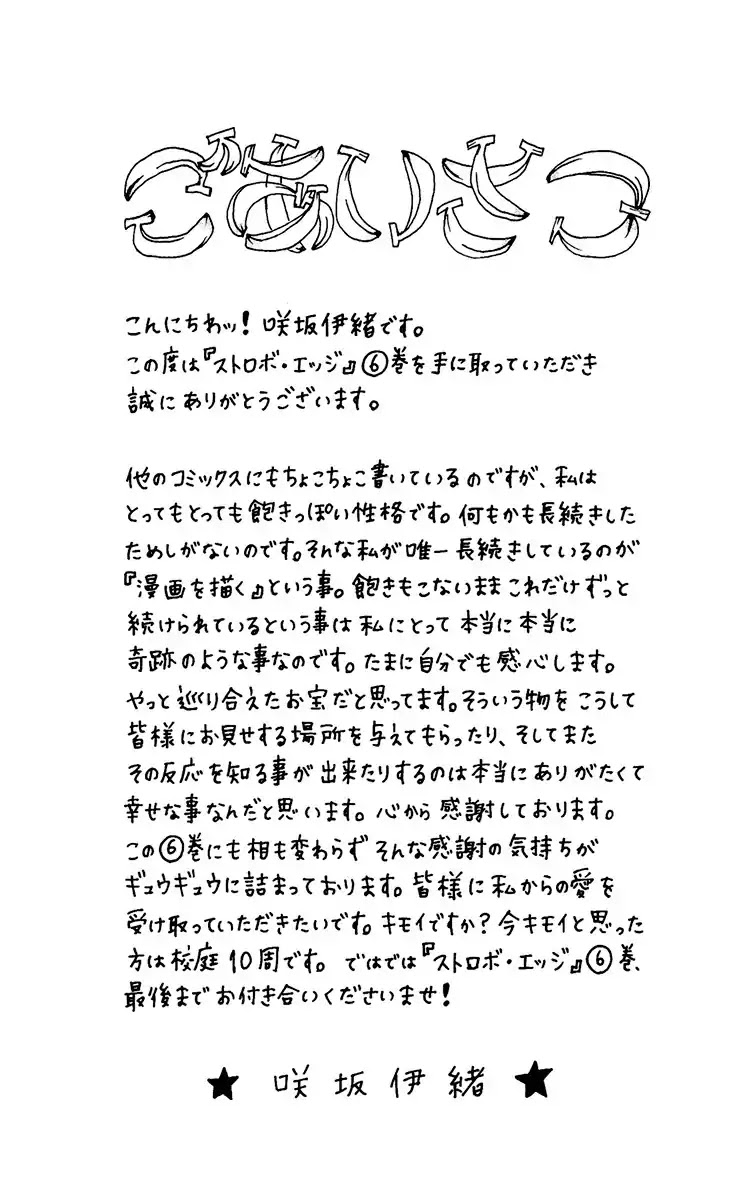 ごあいさつ
こんにちわッ！咲坂伊緒です。
この度は『ストロボ・エッジ』⑥巻を手に取っていただき
誠にありがとうございます。
他のコミックスにもちょこちょこ書いているのですが、私は
とってもとっても飽きっぽい性格です。何もかも長続きした
ためしがないのです。そんな私が唯一長続きしているのが
『漫画を描く』という事。飽きもこないままこれだけずっと
続けられているという事は私にとって本当に本当に
奇跡のような事なのです。たまに自分でも感心します。
やっと巡り合えたお宝だと思ってます。そういう物をこうして
皆様にお見せする場所を与えてもらったり、そしてまた
その反応を知る事が出来たりするのは本当にありがたくて
幸せな事なんだと思います。心から感謝しております。
この⑥巻にも相も変わらずそんな感謝の気持ちが
ギュウギュウに詰まっております。皆様に私からの愛を
受け取っていただきたいです。キモイですか？今キモイと思った
方は校庭10周です。ではでは『ストロボ・エッジ』⑥巻、
最後までお付き合いくださいませ！
★ 咲坂伊緒 ★